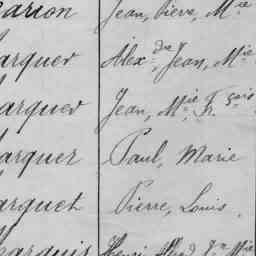 arion Jean, Pierre, Mie
arquer Alexdre, Jean, Mie
arquer Jean, Mie Fçois
arquer Paul, Marie
arquet Pierre, Louis
arquis Henri